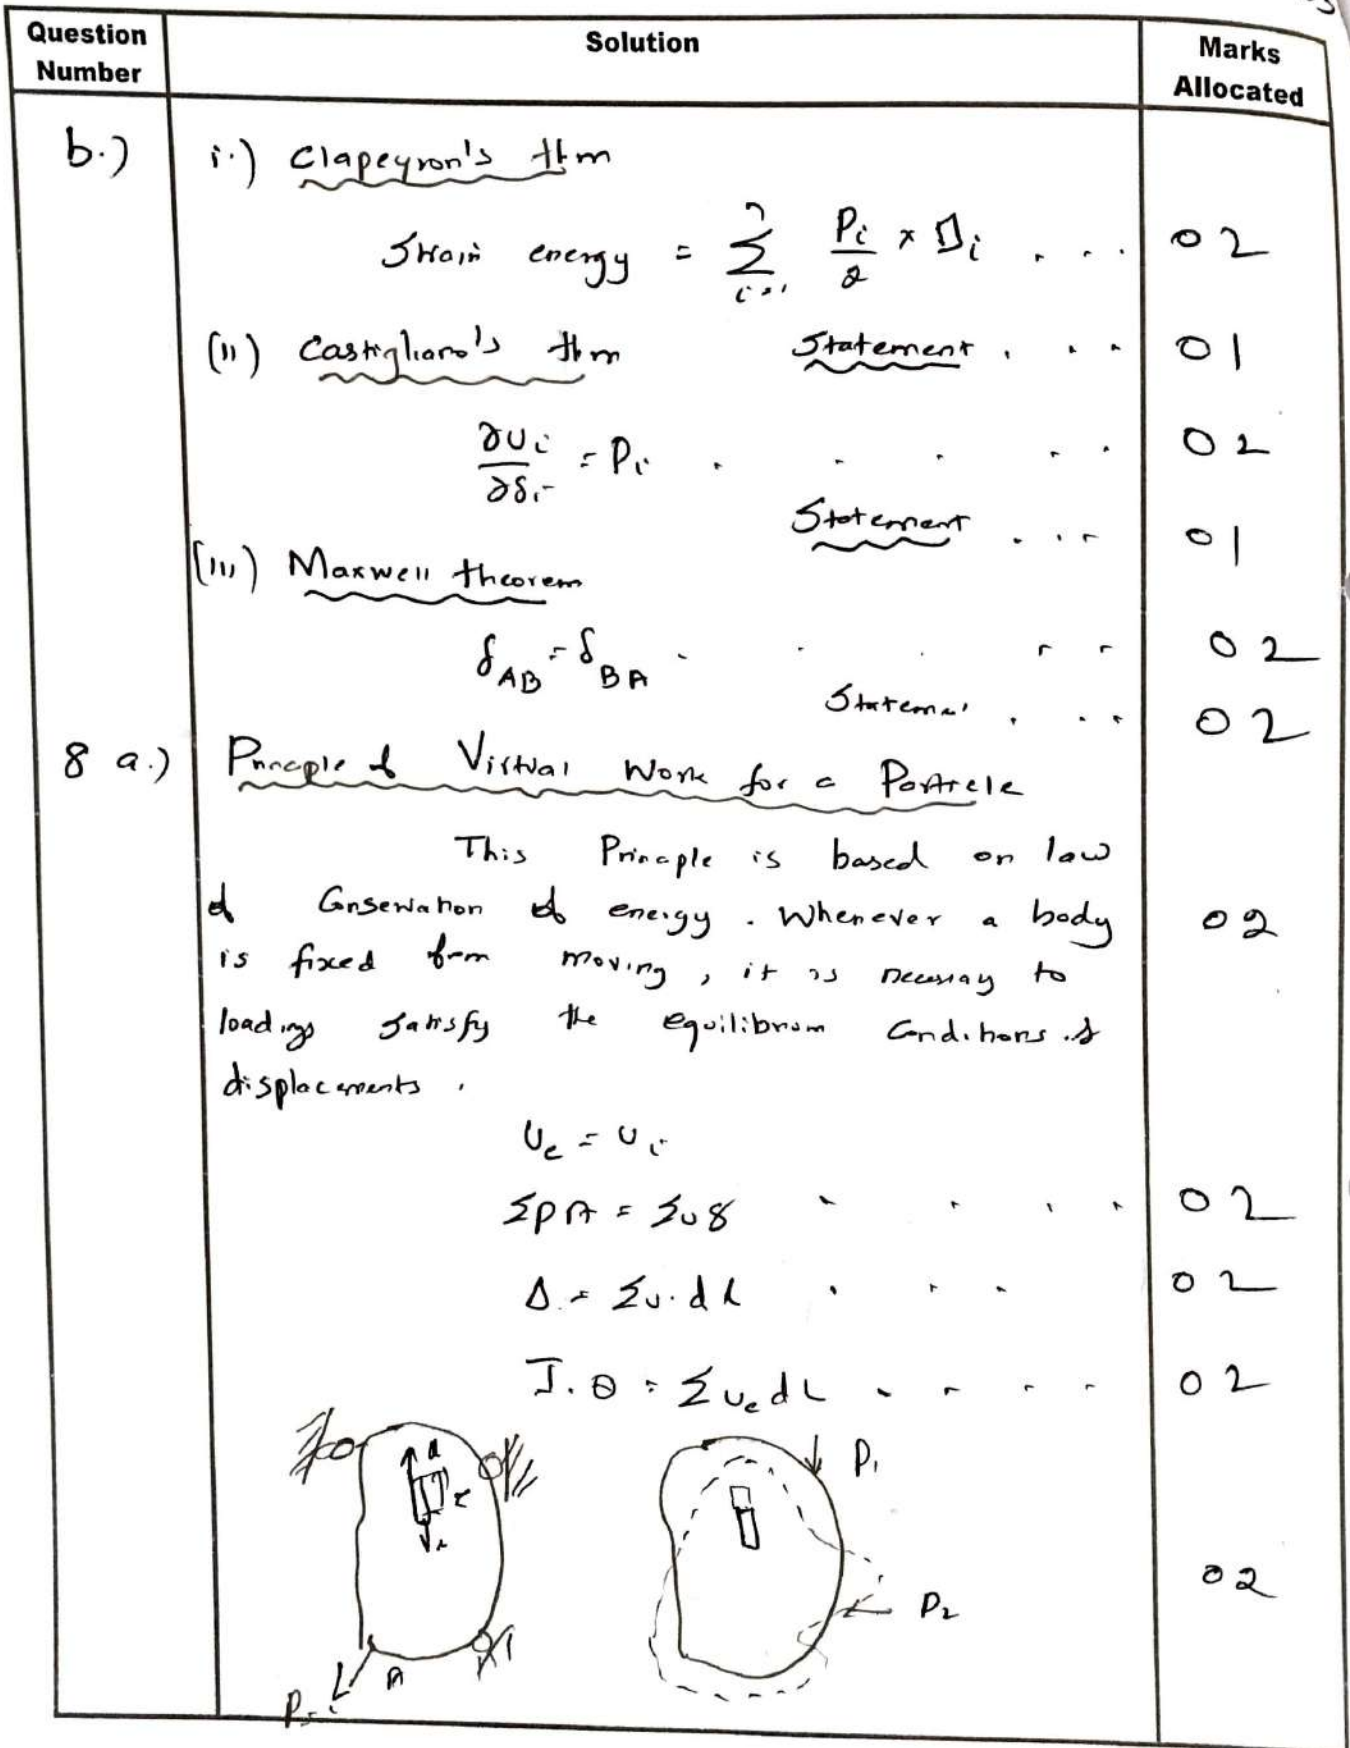 Question Number
Solution
Marks Allocated
b.) i.) Clapeyron's thm
Strain energy = Σ i=1 n Pi/2 × Δi . . . 02
(ii) Castigliano's thm Statement . . . 01
∂Ui/∂δi = Pi . . . . . 02
Statement . . . 01
(iii) Maxwell theorem
δAB = δBA . . . . . 02
Statemen . . . 02
8 a.) Principle of Virtual Work for a Particle
This Principle is based on law
of Conservation of energy. Whenever a body 02
is fixed from moving, it is necessary to
loadings satisfy the equilibrium Conditions of
displacements.
Ue = Ui
ΣPΔ = Σuδ . . . . 02
Δ = Σu.dL . . . 02
I.θ = Σue dL . . . . 02
P1
P2 02
A